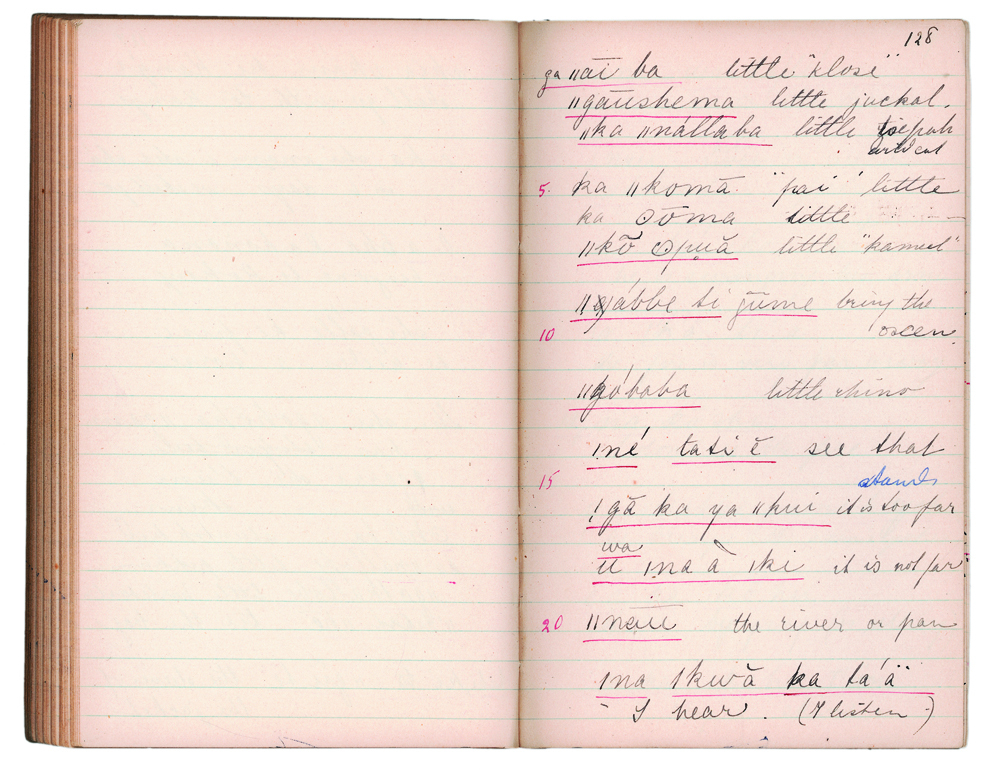 128
ga ǁāi ba little "klosi"
ǁgāushema little jackal.
ǁka ǁnállaba little
5. ka ǁkomā "pai" little
ka ʘōma little
ǁkō̃ ʘpuă little "kameel"
ǁgábbe ti gūme bring the
10 oxen.
ǁgóbaba little rhino
ǀné tati ĕ see that
15 stands
ǃgā ka ya ǁkui it is too far
wa
ū ǀna à ǀki it is not far
20 ǁnaū the river or pan
ǀna ǀkwă ka tá'ä
I hear. (I listen)